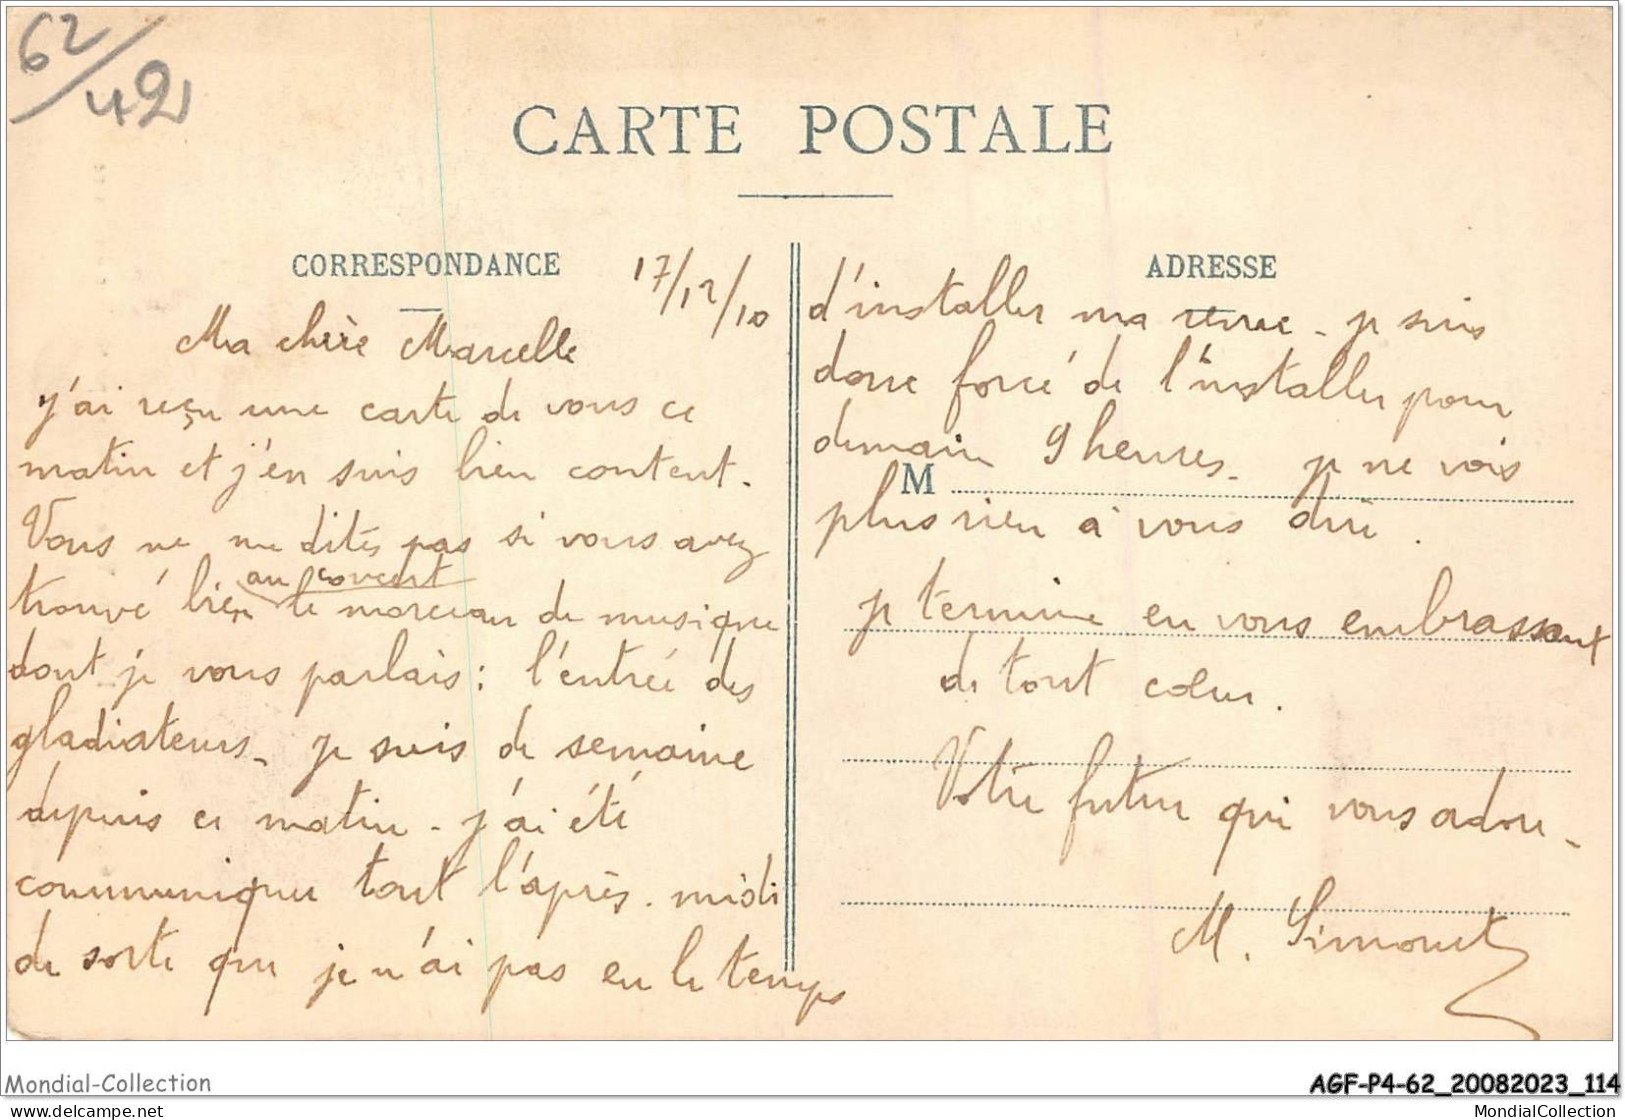 62/421
CARTE POSTALE
CORRESPONDANCE
17/12/10
Ma chère Marcelle
j'ai reçu une carte de vous ce
matin et j'en suis bien content.
Vous ne me dites pas si vous avez
au concert
trouvé bien le morceau de musique
dont je vous parlais : l'entrée des
gladiateurs - je suis de semaine
depuis ce matin - j'ai été
communiquer tout l'après-midi
de sorte que je n'ai pas eu le temps
ADRESSE
d'installer ma revue - je suis
donc forcé de l'installer pour
demain 9 heures - je ne vois
M
plus rien à vous dire.
je termine en vous embrassant
de tout cœur.
Votre futur qui vous adore -
M. Simonet
Mondial-Collection
AGF-P4-62_20082023_114
https://www.delcampe.net
MondialCollection